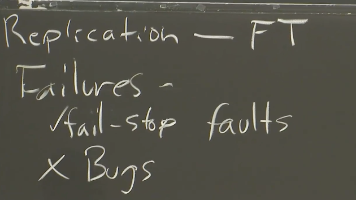 Replication — FT
Failures -
✓fail-stop faults
X Bugs